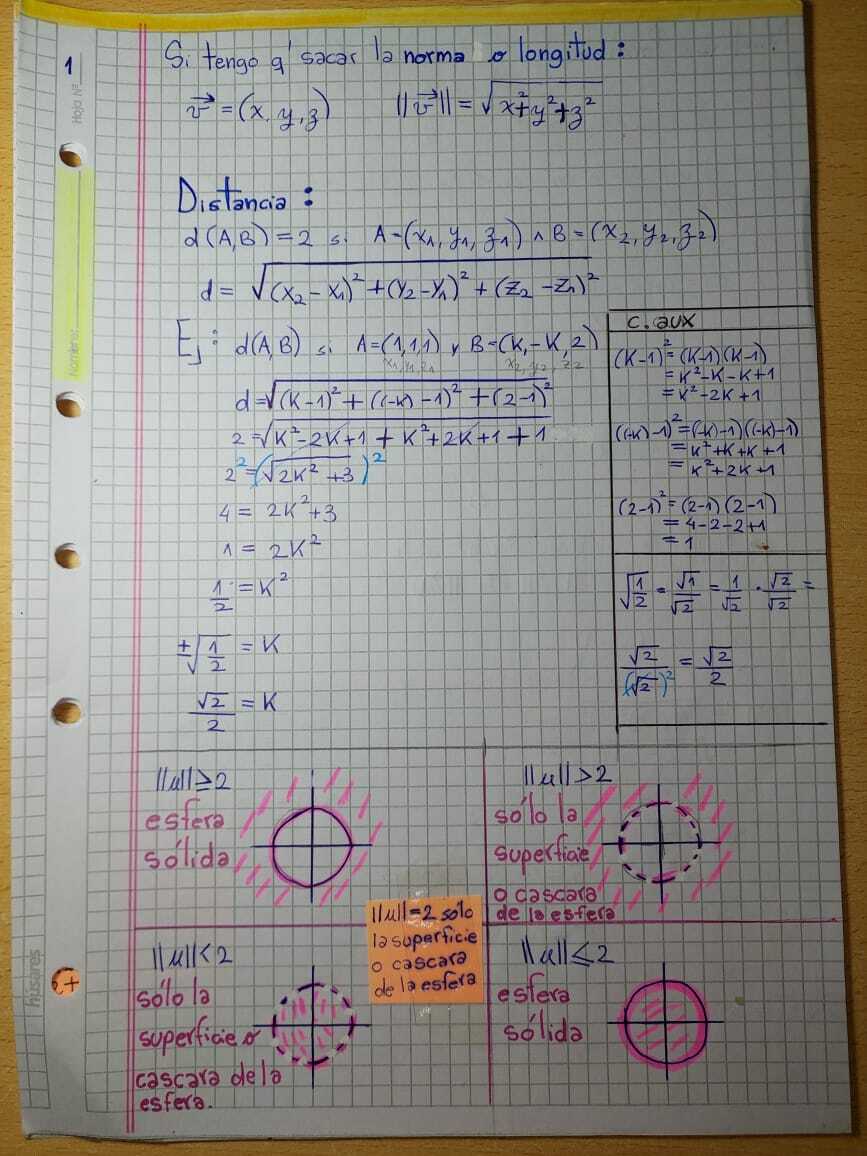 1
Nº Hoja
Nombre:
Si tengo q' sacar la norma o longitud:
v⃗ = (x, y, z) ||v⃗|| = √(x²+y²+z²)
Distancia:
d(A,B) = 2 si A=(x₁, y₁, z₁) ∧ B=(x₂, y₂, z₂)
d = √((x₂ - x₁)² + (y₂ - y₁)² + (z₂ - z₁)²)
Ej: d(A,B) si A=(1,1,1) y B=(K,-K,2)
x₁,y₁,z₁ x₂, y₂, z₂
d=√((K-1)² + ((-K)-1)² + (2-1)²)
2=√(K²-2K+1 + K²+2K+1 + 1)
2²=(√(2K²+3))²
4 = 2K²+3
1 = 2K²
1/2 = K²
±√(1/2) = K
√2/2 = K
c. aux
(K-1)² = (K-1)(K-1)
= K²-K-K+1
= K²-2K+1
((-K)-1)² = ((-K)-1)((-K)-1)
= K²+K+K+1
= K²+2K+1
(2-1)² = (2-1)(2-1)
= 4-2-2+1
= 1
√(1/2) = √1/√2 = 1/√2 · √2/√2 =
√2/(√2)² = √2/2
||u||≥2
esfera
sólida
||u||>2
sólo la
superficie
o cascara
de la esfera
||u||=2 sólo
la superficie
o cascara
de la esfera
||u||<2
sólo la
superficie o
cascara de la
esfera.
||u||≤2
esfera
sólida
húsares